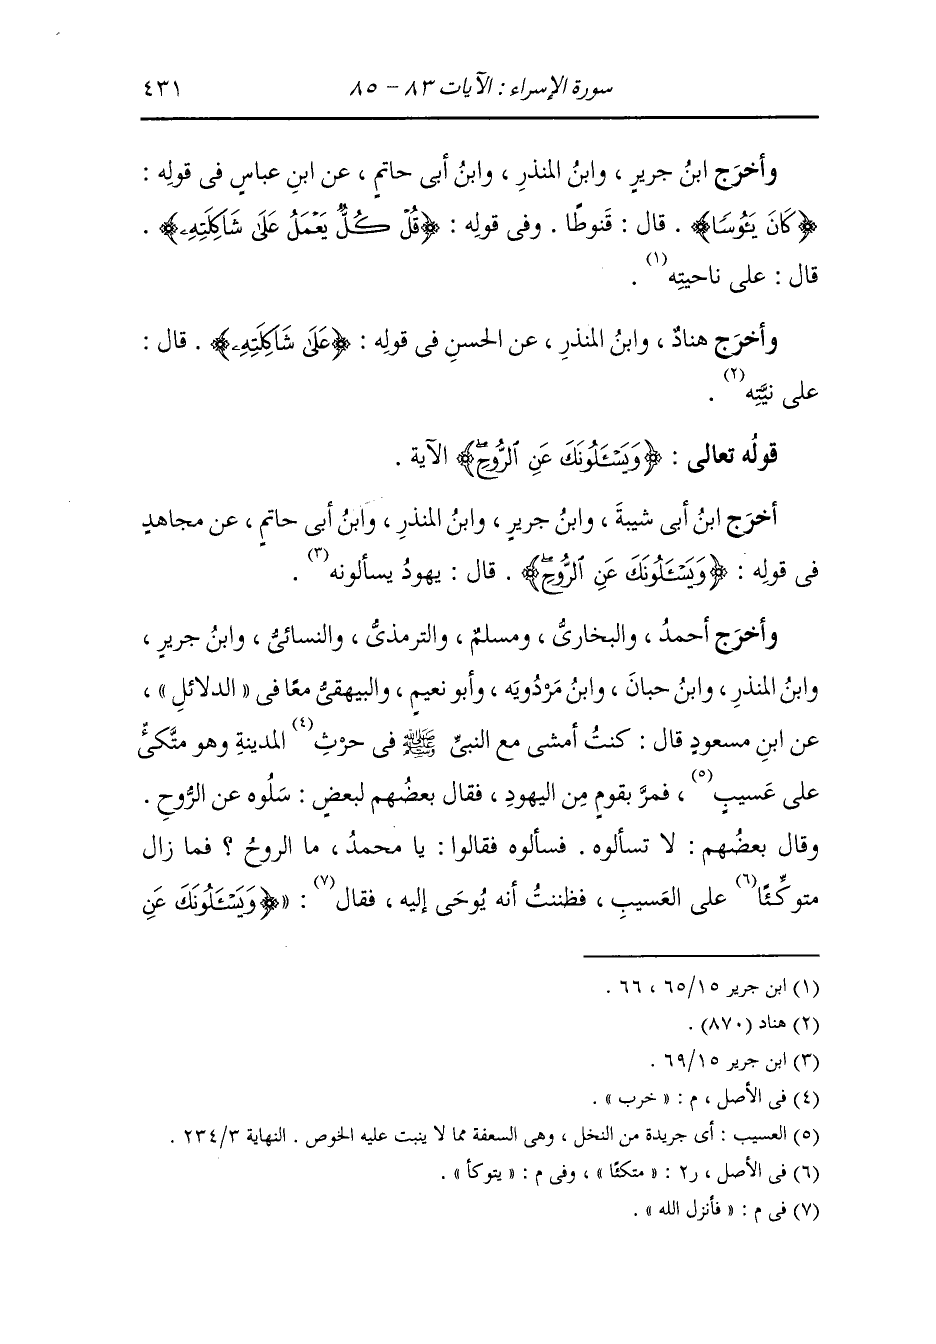 سورة الإسراء : الآيات ٨٣ - ٨٥ ٤٣١
وأخرَج ابنُ جريرٍ ، وابنُ المنذرِ ، وابنُ أبى حاتمٍ ، عن ابنِ عباسٍ فى قولِه :
﴿كَانَ يَـُٔوسًا﴾ . قال : قَنوطًا . وفى قولِه : ﴿قُلْ كُلٌّ يَعْمَلُ عَلَىٰ شَاكِلَتِهِۦ﴾ .
قال : على ناحيتِه(١) .
وأخرَج هنادٌ ، وابنُ المنذرِ ، عن الحسنِ فى قولِه : ﴿عَلَىٰ شَاكِلَتِهِۦ﴾ . قال :
على نيَّتِه(٢) .
قولُه تعالى : ﴿وَيَسْـَٔلُونَكَ عَنِ ٱلرُّوحِۖ﴾ الآية .
أخرَج ابنُ أبى شيبةَ ، وابنُ جريرٍ ، وابنُ المنذرِ ، وابنُ أبى حاتمٍ ، عن مجاهدٍ
فى قولِه : ﴿وَيَسْـَٔلُونَكَ عَنِ ٱلرُّوحِۖ﴾ . قال : يهودُ يسألونه(٣) .
وأخرَج أحمدُ ، والبخارىُّ ، ومسلمٌ ، والترمذىُّ ، والنسائىُّ ، وابنُ جريرٍ ،
وابنُ المنذرِ ، وابنُ حبانَ ، وابنُ مَرْدُويَه ، وأبو نعيمٍ ، والبيهقىُّ معًا فى « الدلائلِ » ،
عن ابنِ مسعودٍ قال : كنتُ أمشى مع النبىِّ ﷺ فى حرْثِ(٤) المدينةِ وهو متَّكئٌ
على عَسيبٍ(٥) ، فمرَّ بقومٍ مِن اليهودِ ، فقال بعضُهم لبعضٍ : سَلُوه عن الرُّوحِ .
وقال بعضُهم : لا تسألوه . فسألوه فقالوا : يا محمدُ ، ما الروحُ ؟ فما زال
متوكِّئًا(٦) على العَسيبِ ، فظننتُ أنه يُوحَى إليه ، فقال(٧) : « ﴿وَيَسْـَٔلُونَكَ عَنِ
(١) ابن جرير ٦٥/١٥ ، ٦٦ .
(٢) هناد (٨٧٠) .
(٣) ابن جرير ٦٩/١٥ .
(٤) فى الأصل ، م : « خرب » .
(٥) العسيب : أى جريدة من النخل ، وهى السعفة مما لا ينبت عليه الخوص . النهاية ٢٣٤/٣ .
(٦) فى الأصل ، ر٢ : « متكئا » ، وفى م : « يتوكأ » .
(٧) فى م : « فأنزل الله » .